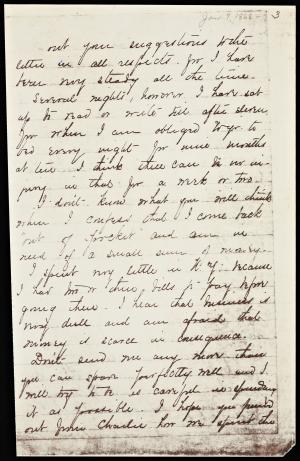 Jan 7, 1868
3
out your suggestions to the
letter in all respects. for I have
been very steady all the time.
Several nights, however, I have sat
up to read or write till after eleven
for when I am obliged to go to
bed every night for nine months
at ten I think there can be no in-
jury in that for a week or two.
I don't know what you will think
when I confess that I come back
out of pocket and am in
need of a small sum of money.
I spent very little in N.Y. because
I had two or three bills to pay upon
going there. I hear that business is
very dull and am afraid that
money is scarce in consequence.
Don't send me any more than
you can spare perfectly well and I
will try to be as careful in spending
it as possible. I hope you found
out from Charlie how we spent the